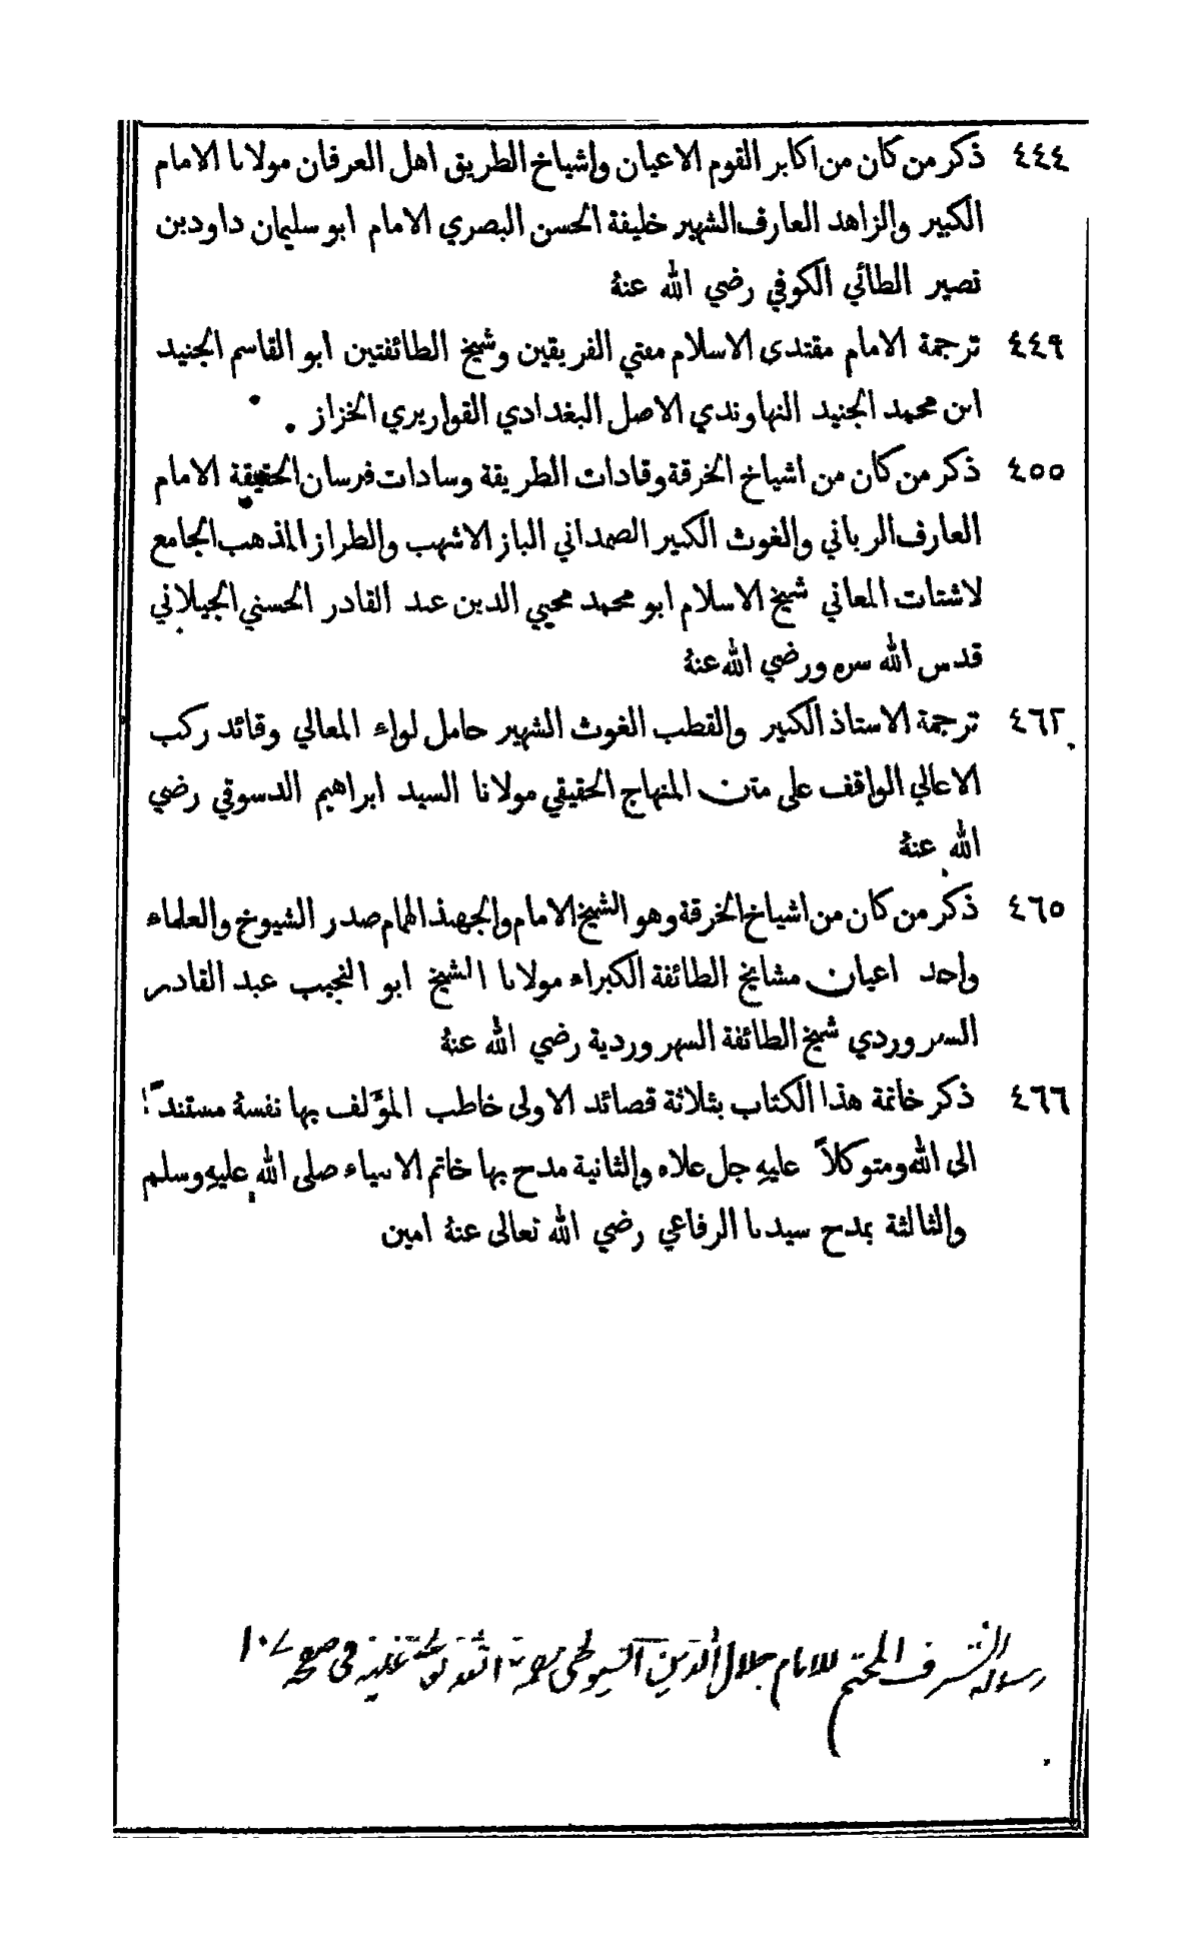 ٤٤٤ ذكر من كان من اكابر القوم الاعيان واشياخ الطريق اهل العرفان مولانا الامام
الكبير والزاهد العارف الشهير خليفة الحسن البصري الامام ابو سليمان داود بن
نصير الطائي الكوفي رضي الله عنهُ
٤٤٩ ترجمة الامام مقتدى الاسلام مفتي الفريقين وشيخ الطائفتين ابو القاسم الجنيد
ابن محمد الجنيد النهاوندي الاصل البغدادي القواريري الخزاز .
٤٥٥ ذكر من كان من اشياخ الخرقة وقادات الطريقة وسادات فرسان الحقيقة الامام
العارف الرباني والغوث الكبير الصمداني الباز الاشهب والطراز المذهب الجامع
لاشتات المعاني شيخ الاسلام ابو محمد محيي الدين عبد القادر الحسني الجيلاني
قدس الله سره ورضي الله عنهُ
٤٦٢ ترجمة الاستاذ الكبير والقطب الغوث الشهير حامل لواء المعالي وقائد ركب
الاعالي الواقف على متن المنهاج الحقيقي مولانا السيد ابراهيم الدسوقي رضي
الله عنهُ
٤٦٥ ذكر من كان من اشياخ الخرقة وهو الشيخ الامام والجهبذ الهمام صدر الشيوخ والعلماء
واحد اعيان مشايخ الطائفة الكبراء مولانا الشيخ ابو النجيب عبد القادر
السهروردي شيخ الطائفة السهروردية رضي الله عنهُ
٤٦٦ ذكر خاتمة هذا الكتاب بثلاثة قصائد الاولى خاطب المؤلف بها نفسهُ مستنداً
الى الله ومتوكلاً عليهِ جل علاه والثانية مدح بها خاتم الانبياء صلى الله عليهِ وسلم
والثالثة بمدح سيدنا الرفاعي رضي الله تعالى عنهُ امين
رسالة الشرف المحتم للامام جلال الدين السيوطي رحمة الله عليه في صحيفة